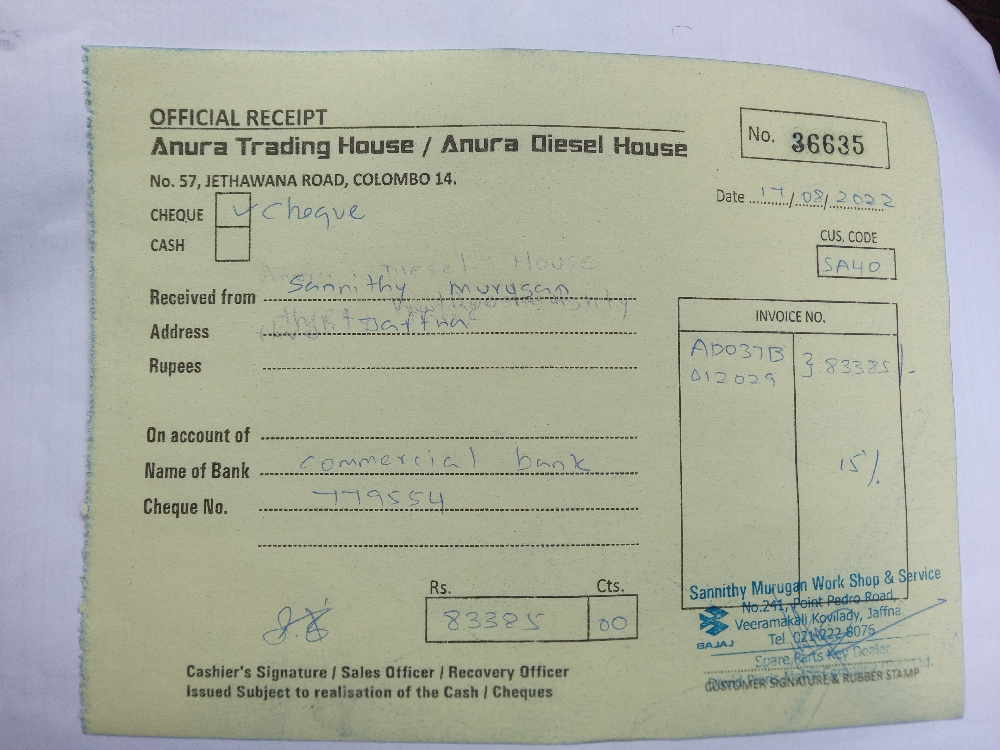 OFFICIAL RECEIPT
Anura Trading House / Anura Diesel House
No. 36635
No. 57, JETHAWANA ROAD, COLOMBO 14.
Date 17/08/2022
CHEQUE ✓ Cheque
CASH
CUS. CODE
SA40
Diesel House
Received from Sannithy murugan
Address Jaffna
Rupees
INVOICE NO.
AD037B
012029 } 83385/-
15%
On account of
Name of Bank commercial bank
Cheque No. 779554
Rs. Cts.
83385 00
Cashier's Signature / Sales Officer / Recovery Officer
Issued Subject to realisation of the Cash / Cheques
Sannithy Murugan Work Shop & Service
No.241, Point Pedro Road,
Veeramakali Kovilady, Jaffna
Tel. 021-222 8075
BAJAJ
Spare Parts Key Dealer
CUSTOMER SIGNATURE & RUBBER STAMP